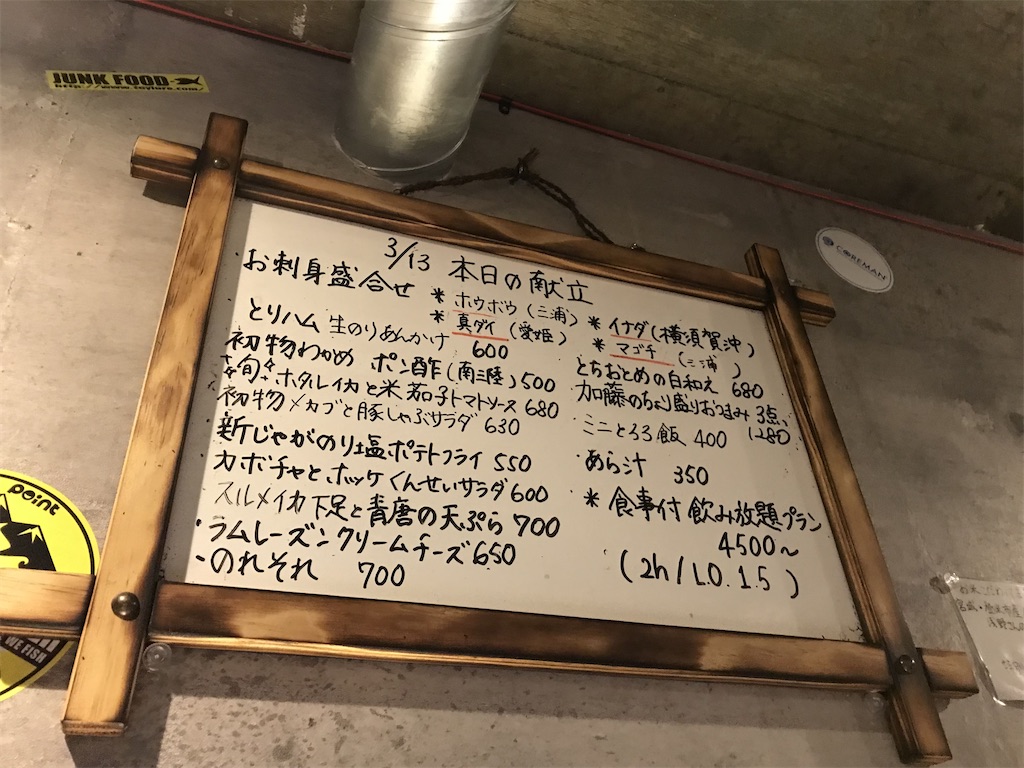 JUNK FOOD
http://www.toylure.com/
COREMAN
3/13 本日の献立
お刺身盛合せ
* ホウボウ (三浦)
* 真ダイ (愛媛)
* イナダ (横須賀沖)
* マゴチ (三浦)
とりハム 生のりあんかけ 600
初物わかめ ポン酢 (南三陸) 500
旬 ホタルイカと米茄子トマトソース 680
初物メカブと豚しゃぶサラダ 630
新じゃがのり塩ポテトフライ 550
カボチャとホッケくんせいサラダ 600
スルメイカ下足と青唐の天ぷら 700
・ラムレーズンクリームチーズ 650
・のれそれ 700
とちおとめの白和え 680
加藤のちょい盛りおつまみ 3点
1280
ミニとろろ飯 400
あら汁 350
* 食事付 飲み放題プラン
4500~
(2h/L.O.1.5)
point
WE FISH